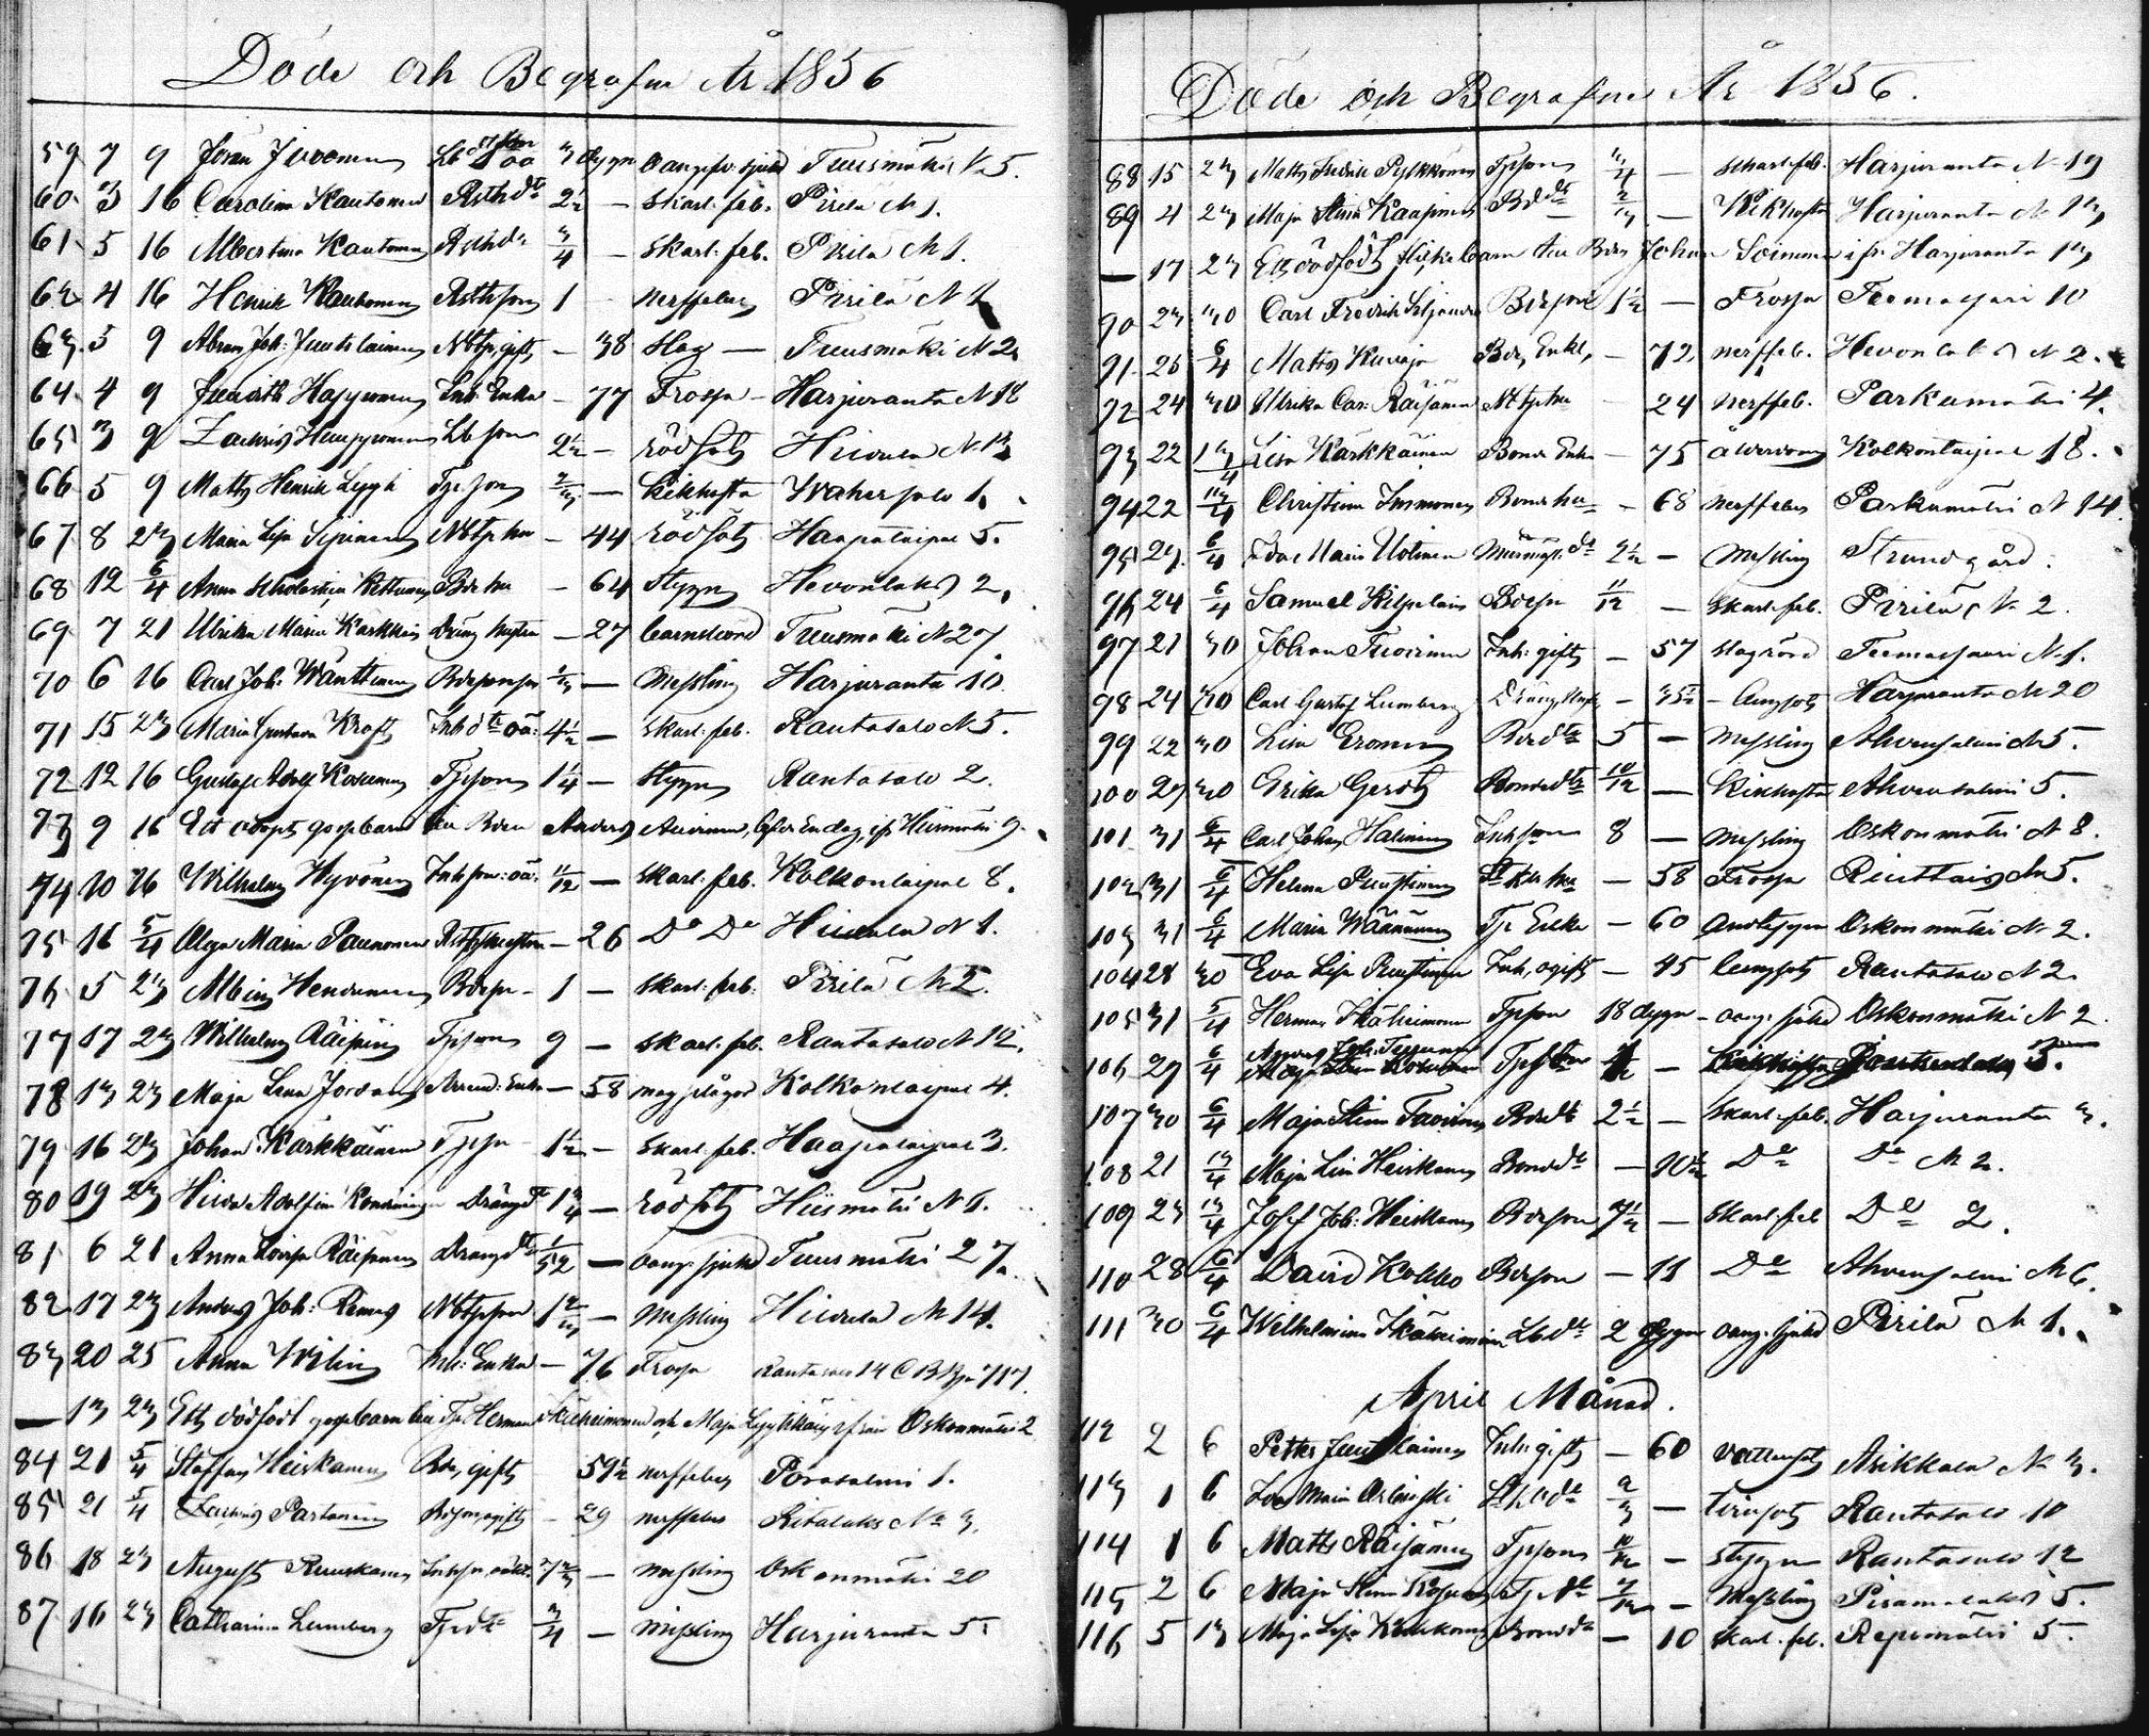 Döde och Begrafne År 1856
59 7 9 Johan Jivonen Lb son oä 3 dygn oangifv. sjukd Tuusmäki N 5.
60. 3 16 Carolina Kautonen Rsthdr 2½ — Skarl: feb. Pirilä N 1.
61 5 16 Albertina Kautonen Rsthdr ¾ — Skarl: feb. Pirilä N 1.
62 4 16 Henrik Kautonen Rsthson 1 nerffeber Pirilä N 1
63. 5 9 Abram Joh: Juutilainen Nbtp, gift — 38 Slag — Tuusmäki N 2
64. 4 9 Judith Happonen Inh: Enka — 77 Frossa — Harjuranta N 18
65 3 9 Zachris Lb son 2½ — rödsot Hiidula N 13
66 5 9 Matts Henrik Lyyti Tjp son 2/3 — Kikhosta Waherjalo 1.
67 8 23 Maria Lisa Nbtp hu — 44 rödsot Haapataipal 5.
68 12 6/4 Anna Kettunen Bde hu — 64 Stygn Hevonlaks 2.
69 7 21 Ulrika Maria Karkkin dräng hustru — 27 barnsbörd Tuusmäki N 27
70 6 16 Carl Joh: Wänttinen Bdesonson 1/3 — Messling Harjuranta 10.
71 15 23 Maria Gustava Kraft Inh dtr oä: 4½ — Skarl: feb. Rantasalo N 5.
72 12 16 Gustaf Adolf Kosunen Tjpson 1¼ — Stygn Rantasalo 2.
73 9 16 Ett odöpt gossebarn Bden Anders Auvinen, lefde En dag, ifr Hiismäki 9.
74 10 16 Wilhelm Hyvönen Inh son: oä. 11/12 — Skarl: feb. Kolkontaipal 8.
75 16 5/4 Olga Maria Paunonen — 26 Do Do Hiidula N 1.
76 5 23 Albin Hendunen Bdeson — 1 — Skarl: feb. Pirilä N 2.
77 17 23 Wilhelm Räisäin Tjpson 9 — Skarl: feb. Rantasalo N 12.
78 13 23 Maja Lena Jordan Arrend: Enka — 58 magplågor Kolkontaipal 4.
79 16 23 Johan Karkkäinen Tjpson 1½ — Skarl: feb. Haapataipal 3.
80 19 23 Hilda Adolfina drängdr 1¾ — rödsot Hiismäki N 1.
81 6 21 Anna Lovisa Räisänen drängdtr 1/52 — oang: sjukd Tuusmäki 27.
82 17 23 Anders Joh: Remes Nbtpson 1 2/3 — Messling Hiidula N 14.
83 20 25 Anna Wilin Inh: Enka — 76 Frossa Rantasalo 14 717.
— 13 23 Ett dödfödt gossebarn Tjp Herman Ikäheimonen och Maja från Oskonmäki 2
84 21 5/4 Staffan Heiskanen Bde, gift 59½ nerffeber Porosalmi 1.
85 21 5/4 Zachris Partanen Bdeson, ogift — 29 nerffeber Ritalaks No 3.
86 18 23 August Ruuskanen Inhson, oäkt. — messling Oskonmäki 20
87 16 23 Catharina Lumberg Tjpdtr ¾ — Messling Harjuranta 5
Döde och Begrafne År 1856.
88 15 23 Matts Fredrik Pylkkönen Tjpson ¾ — Skarl: feb. Harjuranta N 19
89 4 23 Maja Stina Kaasinen Bddtr 2/3 — Kikhosta Harjuranta N 13
— 17 23 Ett dödfödt flickebarn Bden Johan Soininen ifr. Harjuranta 13
90 23 30 Carl Fredrik Bdeson 1½ — Frossa Teemassaari 10
91. 25 6/4 Matts Kuvaja Bde, Enkl, — 72, nerffeb. Hevonlaks N 2.
92 24 30 Ulrika Car: Räisänen Nbtp hu 24 nerffeb. Parkumäki 4.
93 22 13/4 Lisa Karkkäinen Bonde Enka — 75 ålderdom Kolkontaipal 18.
94 22 13/4 Christina Immonen Bonde hu — 68 nerffeber Parkumäki N 14.
95 27 6/4 Ida Maria Uotinen dtr 2½ — Messling Strandgård.
96 24 6/4 Samuel Kilpeläin Bdeson 11/12 — Skarl: feb. Pirilä N 2.
97 21 30 Johan Tuorinen Inh: gift — 57 slagrörd Teemassaari N 1.
98 24 30 Carl Gustaf Lumberg — 35½ — lungsot Harjuranta N 20
99 22 30 Lisa Eronen Bdedtr 5 — Messling Ahvensalmi N 5.
100 27 30 Erika Gerdt Bondedtr 10/12 — Kikhosta Ahvensalmi 5.
101 31 6/4 Carl Johan Halinen Inhson 8 — Messling Oskonmäki N 8.
102 31 6/4 Helena Puustinen hu — 58 Frossa N 5.
103 31 6/4 Maria Wänninen Tjp Enka — 60 andtäppa Oskonmäki N 2.
104 28 30 Eva Lisa Puustinen Inh, ogift — 45 lungsot Rantasalo N 2.
105 31 5/4 Herman Ikäheimonen Tjpson 18 dygn — oang: sjukd Oskonmäki N 2.
106 29 6/4 Joh: Tjpson ½ — 5.
107 30 6/4 Maja Stina Tavinen Bdedtr 2½ — Skarl: feb. Harjuranta 3.
108 21 13/4 Maja Lisa Heiskanen Bondedtr — 10½ Do Do N 2.
109 23 13/4 Josef Joh: Heiskanen Bdeson 7½ — Skarl: feb Do 2.
110 28 6/4 David Kokko Bdeson — 11 Do Ahvensalmi N 6.
111 30 6/4 Wilhelmina Ikäheimonen Lbdtr 2 dygn oang. sjukd Pirilä N 1.
April Månad.
112 2 6 Petter Juutilainen Inh gift — 60 vattusot Arikkala N 3.
113 1 6 Eva Maria dtr 2/3 — tvinsot Rantasalo 10
114 1 6 Matts Räisänen Tjpson 10/12 — stygn Rantasalo 12
115 2 6 Maja Stina Tjpdtr — Messling Piramalaks 5.
116 5 13 Maja Lisa Bondedtr — 10 Skarl. feb. Repomäki 5.